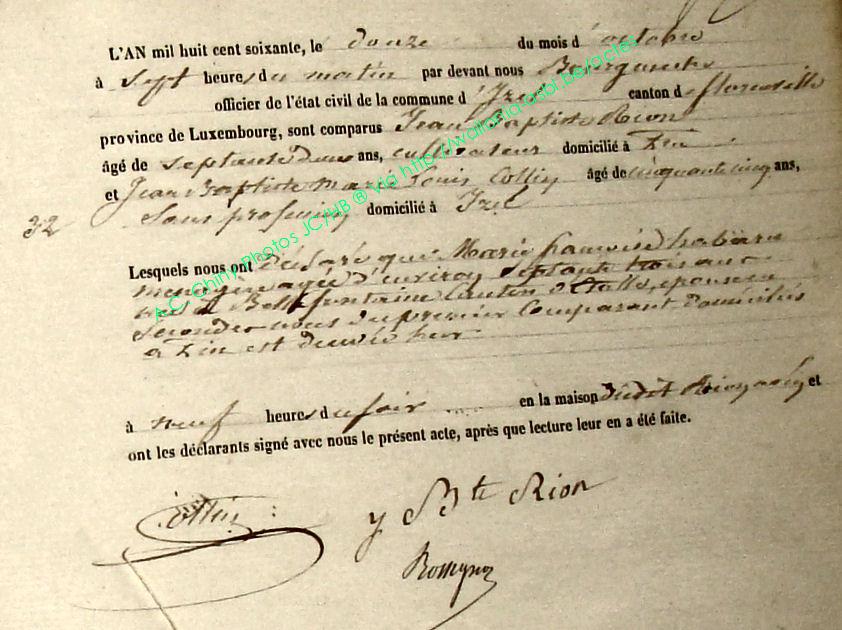 L'AN mil huit cent soixante, le douze du mois d'octobre
à sept heures du matin par devant nous
officier de l'état civil de la commune d'Izel canton de florenville
province de Luxembourg, sont comparus Jean Baptiste Rion
âgé de septante deux ans, cultivateur domicilié à
et Jean Baptiste Marie Louis Collin âgé de cinquante cinq ans,
32
Sans profession domicilié à Izel
Lesquels nous ont déclaré que Marie françoise
menagère agée d'environ septante trois ans
née à Bellefontaine Canton d'Etalle, épouse en
secondes noces du premier Comparant domiciliés
à est decedée hier
à neuf heures du soir en la maison dudit Rion et
ont les déclarants signé avec nous le présent acte, après que lecture leur en a été faite.
Collin
J Bte Rion
A.C. Chiny Photos JC/HB ® Via http://wallonia.asbl.be/actes